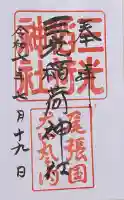 奉拝
三光稲荷神社
令和年月十九日
三光
稲荷
神社
尾張国